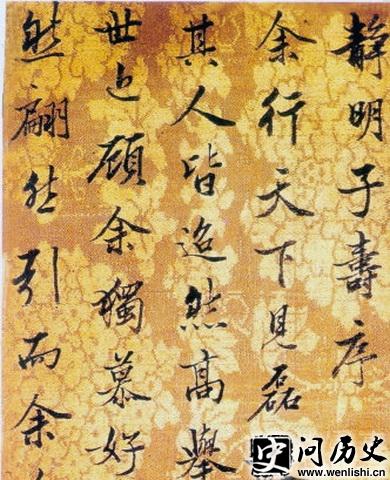 靜明子壽序
余行天下見磊
其人皆迢然高舉
世上顧余獨慕好
然翩然引而余
史 问历史
www.wenlishi.cn